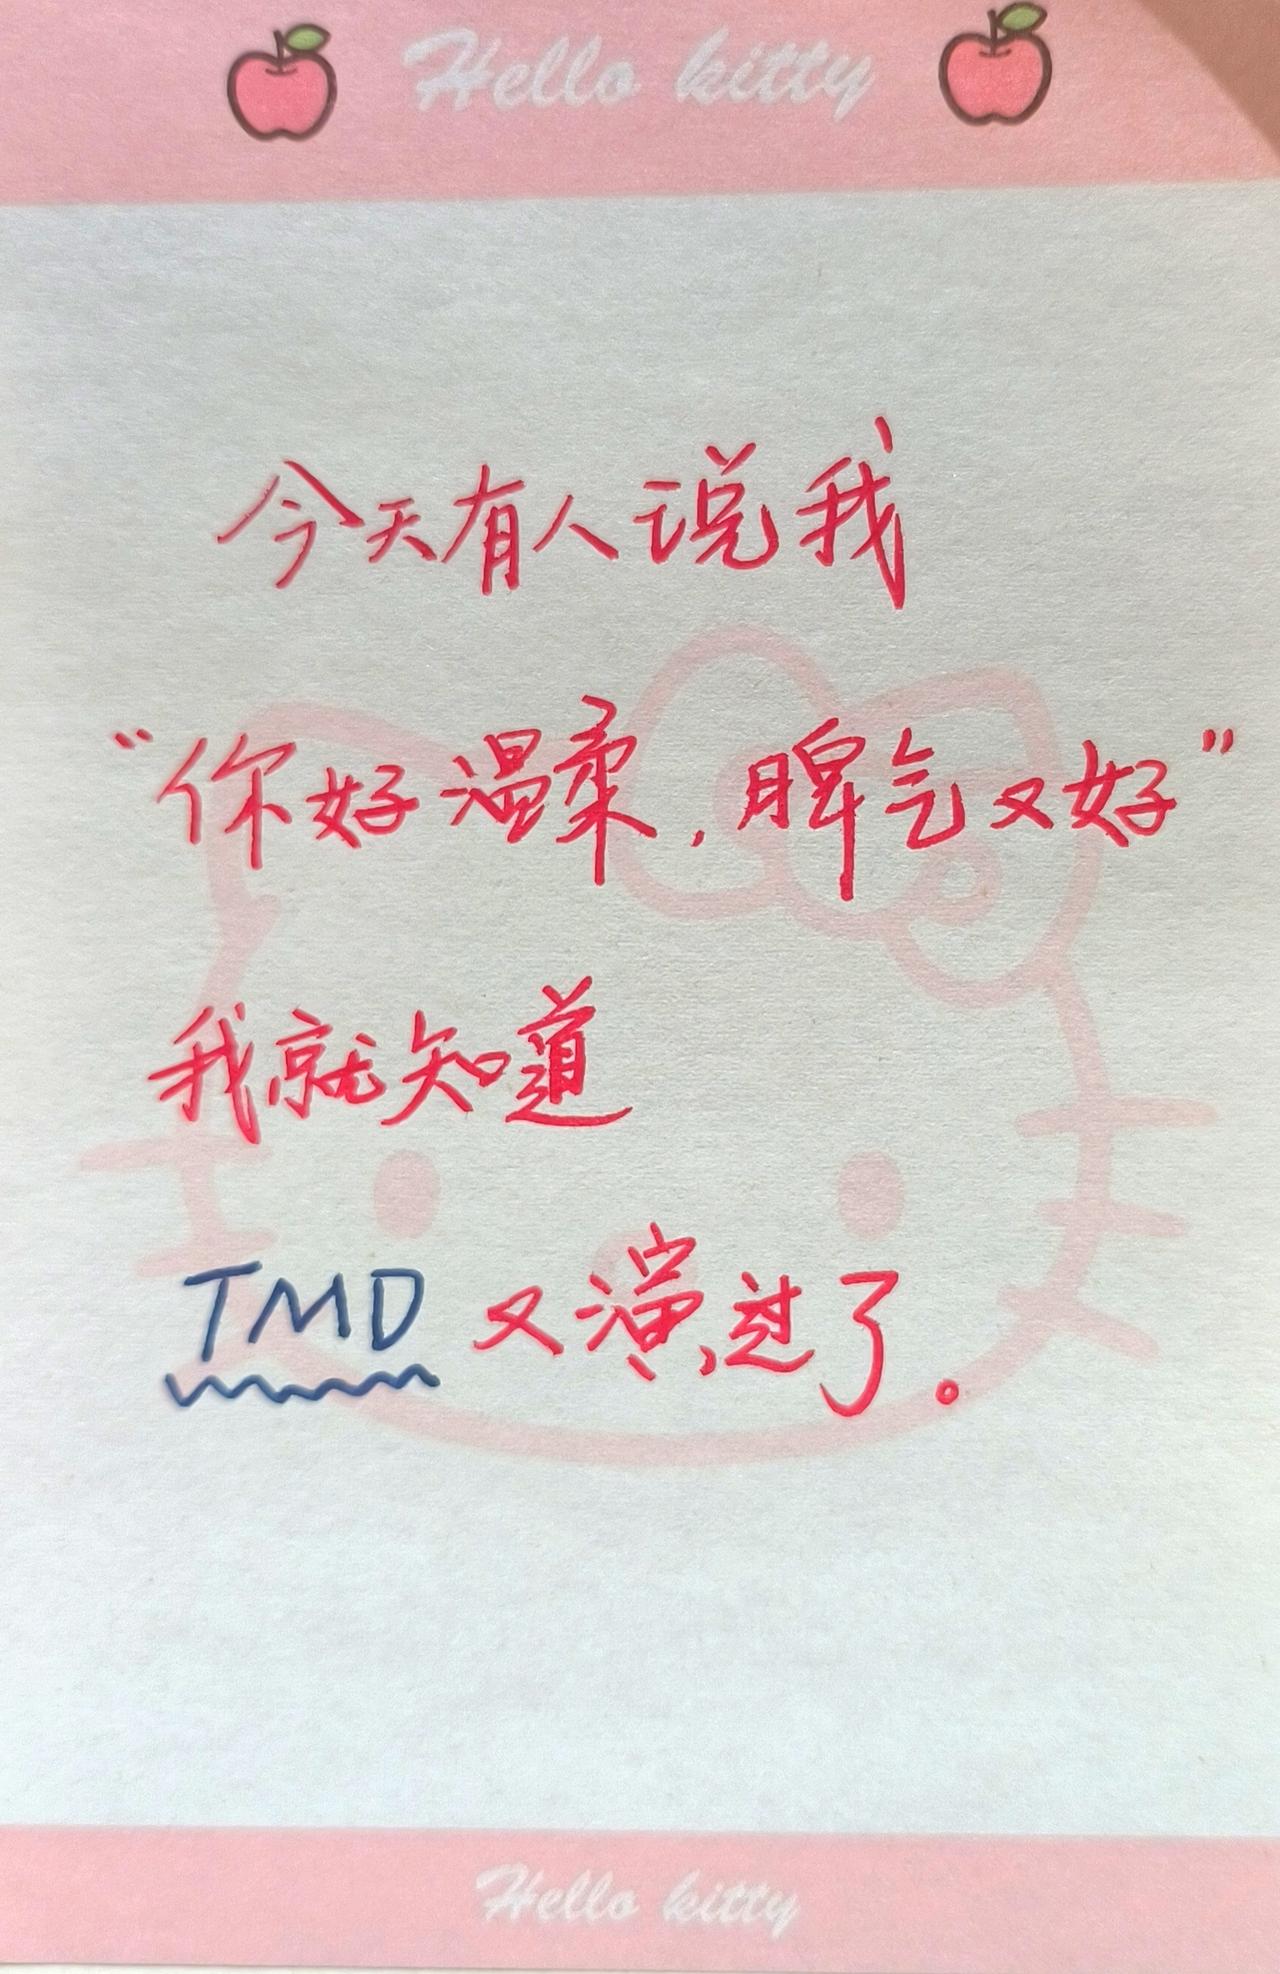 Hello kitty
今天有人说我
“你好温柔，脾气又好”
我就知道
TMD 又演过了。
Hello kitty